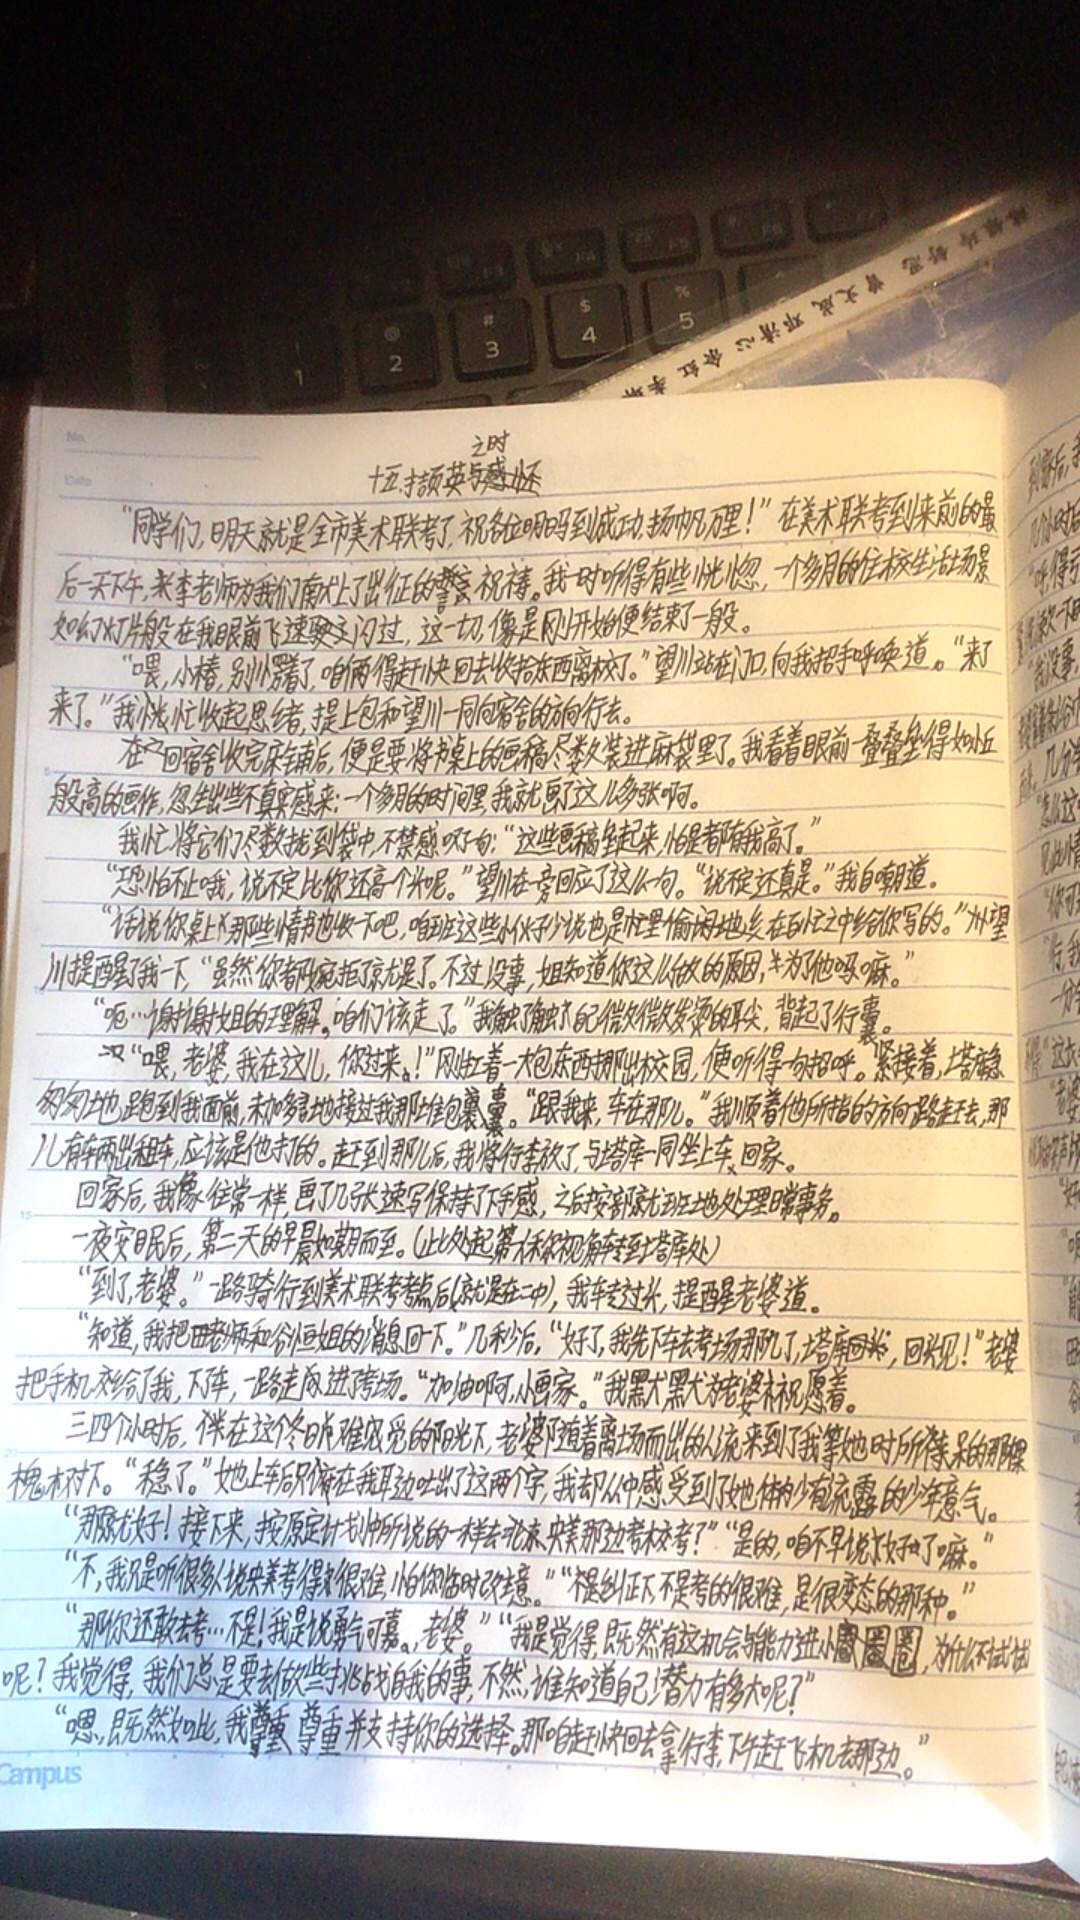 No.
Date
之时
十五.撷英与感怀
“同学们,明天就是全市美术联考了,祝各位明吗到成功,扬帆万里!”在美术联考到来前的最
后一天下午,李老师为我们献上了出征的祝祷。我一时听得有些恍惚,一个多月的住校生活场景
如幻灯片般在我眼前飞速闪过,这一切,像是刚开始便结束了一般。
“喂,小椿,别愣着了,咱两得赶快回去收拾东西离校了。”望川站在门口,向我招手呼唤道。“来了
来了。”我忙收起思绪,提上包和望川一同向宿舍的方向行去。
在回宿舍收完床铺后,便是要将书桌上的画稿尽数装进麻袋里了。我看着眼前一叠叠垒得如小丘
般高的画作,忽生出些不真实感来:一个多月的时间里,我就画了这么多张啊。
我忙将它们尽数拢到袋中,不禁感叹了句:“这些画稿垒起来,怕是都有我高了。”
“恐怕不止哦,说不定比你还高个头呢。”望川在旁回应了这么一句。“说不定还真是。”我自嘲道。
“话说你桌上那些情书也收一下吧,咱班这些小伙子少说也是忙里偷闲地在百忙之中给你写的。”望
川提醒了我一下,“虽然你都婉拒了就是了。不过没事,姐知道你这么做的原因,为了他吗嘛。”
“呃…谢谢姐的理解,咱们该走了。”我触了触自己微微发烫的耳尖,背起了行囊。
“喂,老婆,我在这儿,你过来!”刚扛着一大包东西挪出校园,便听得一句招呼。紧接着,塔库急
匆匆地跑到我面前,未加多言地接过我那堆包裹。“跟我来,车在那儿。”我顺着他所指的方向一路赶去,那
儿有车两出租车,应该是他打的。赶到那儿后,我将行李放了,与塔库一同坐上车,回家。
回家后,我像往常一样,画了几张速写保持了下手感,之后按部就班地处理日常事务。
一夜安眠后,第二天的早晨如期而至。(此处起第一人称视角转至塔库处)
“到了,老婆。”一路骑行到美术联考考点后(就是在二中),我转过头,提醒老婆道。
“知道,我把田老师和谷恒姐的消息回一下。”几秒后,“好了,我先下车去考场那儿了,塔库,回头见!”老婆
把手机交给了我,下车,一路走进了考场。“加油啊,小画家。”我默默为老婆祝愿着。
三四个小时后,伴在这个冬日难受的阳光下,老婆随着离场而出的人流来到了我等她时所待的那棵
槐树下。“稳了。”她上车后只俯在我耳边吐出了这两个字,我却从中感受到了她体内少有流露的少年意气。
“那就好!接下来,按原定计划中所说的一样去北京央美那边考校考?”“是的,咱不早说好了嘛。”
“不,我只是听很多人说央美考得很难,怕你临时改主意。”“纠正下,不是考的很难,是很变态的那种。”
“那你还敢去考…不是!我是说勇气可嘉,老婆。”“我是觉得,既然有这机会与能力进小圈圈,为什么不试试
呢?我觉得,我们总是要去做些挑战自我的事,不然,谁知道自己潜力有多大呢?”
“嗯,既然如此,我尊重并支持你的选择。那咱赶快回去拿行李,下午赶飞机去那边。”
Campus
1
2
#
3
$
4
%
5